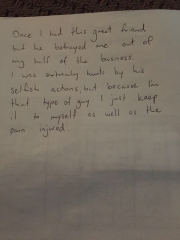 Once I had this great friend
but he betrayed me out of
my half of the business.
I was extremely hurt by his
selfish actions, but because I'm
that type of guy I just keep
it to myself as well as the
pain injured.